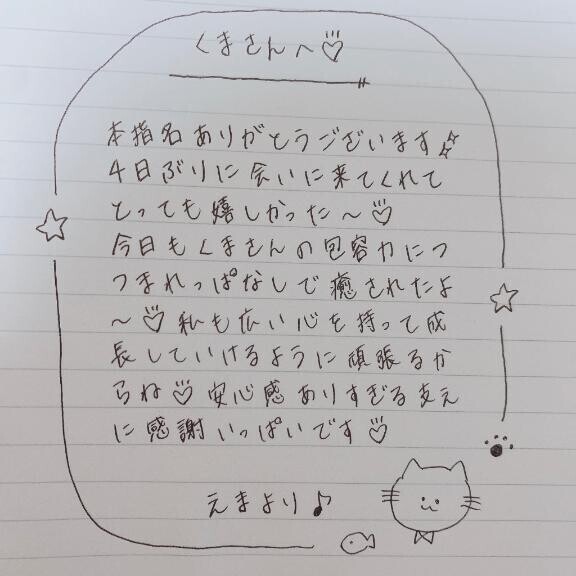 くまさんへ♡
本指名ありがとうございます
4日ぶりに会いに来てくれて
とっても嬉しかった〜♡
今日もくまさんの包容力につ
つまれっぱなしで癒されたよ
〜♡私も広い心を持って成
長していけるように頑張るか
らね♡安心感ありすぎる支え
に感謝いっぱいです♡
えまより♪